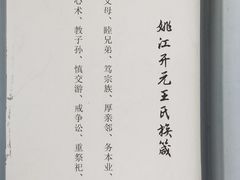 姚江开元王氏族箴
父母、睦兄弟、笃宗族、厚亲邻、务本业、
心术、教子孙、慎交游、戒争讼、重祭祀、